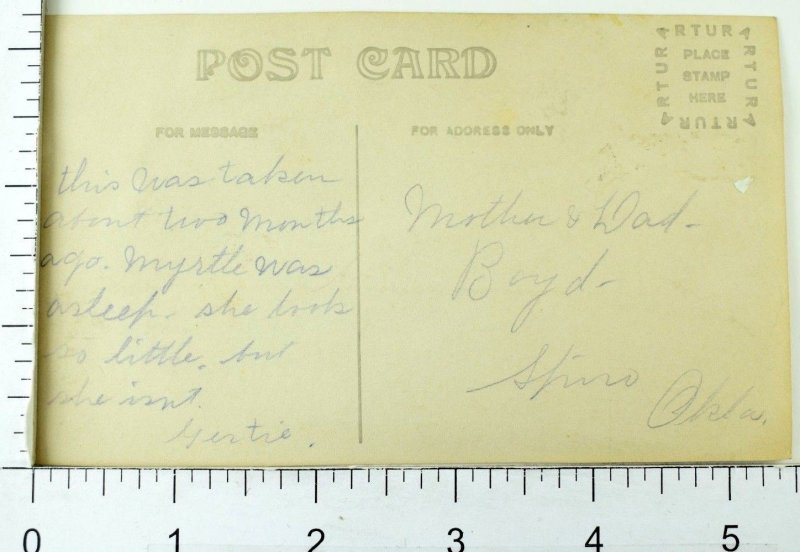 POST CARD
ARTURA
ARTURA
ARTURA
ARTURA
PLACE
STAMP
HERE
FOR MESSAGE
FOR ADDRESS ONLY
this was taken
about two months
ago. Myrtle was
asleep. she looks
so little. but
she isnt.
Gertie.
Mother & Dad-
Boyd-
Spiro
Okla.
0 1 2 3 4 5